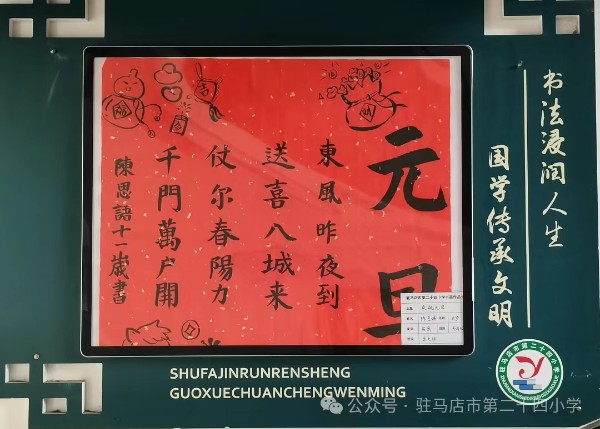 元旦
東風昨夜到
送喜八城来
仗尔春陽力
千門萬户開
陳思語十一歲書
书法浸润人生
国学传承文明
SHUFAJINRUNRENSHENG
GUOXUECHUANCHENGWENMING
驻马店市第二十四小学
公众号 · 驻马店市第二十四小学